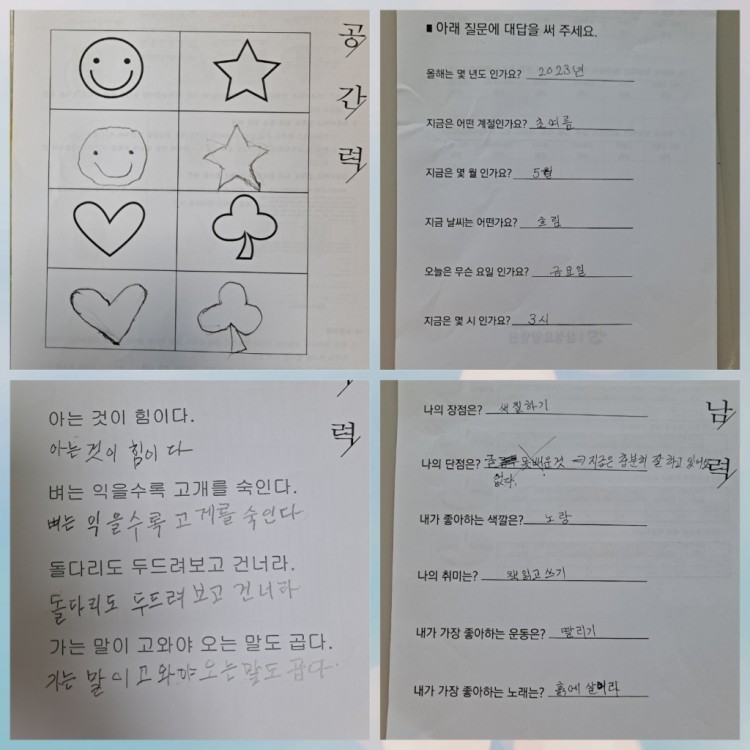 공
간
력
■ 아래 질문에 대답을 써 주세요.
올해는 몇 년도 인가요? 2023년
지금은 어떤 계절인가요? 초여름
지금은 몇 월 인가요? 5월
지금 날씨는 어떤가요? 흐림
오늘은 무슨 요일 인가요? 금요일
지금은 몇 시 인가요? 3시
력
아는 것이 힘이다.
아는 것이 힘이 다
벼는 익을수록 고개를 숙인다.
벼는 익을수록 고게를 숙인다
돌다리도 두드려보고 건너라.
돌다리도 두드려 보고 건너라
가는 말이 고와야 오는 말도 곱다.
가는 말이 고와야 오는 말도 곱다.
남
력
나의 장점은? 색칠하기
나의 단점은? 못배운것 → 지금은 충분히 잘 하고 있어요
없다.
내가 좋아하는 색깔은? 노랑
나의 취미는? 책읽고 쓰기
내가 가장 좋아하는 운동은? 딸리기
내가 가장 좋아하는 노래는? 흙에 살어라